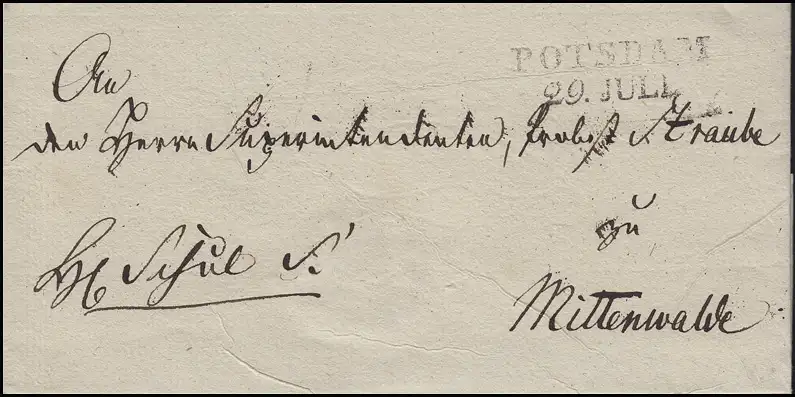 POTSDAM
29. JULI.
An
den Herrn Superintendenten, Probst Straube
zu
Hl Schul S.
Mittenwalde